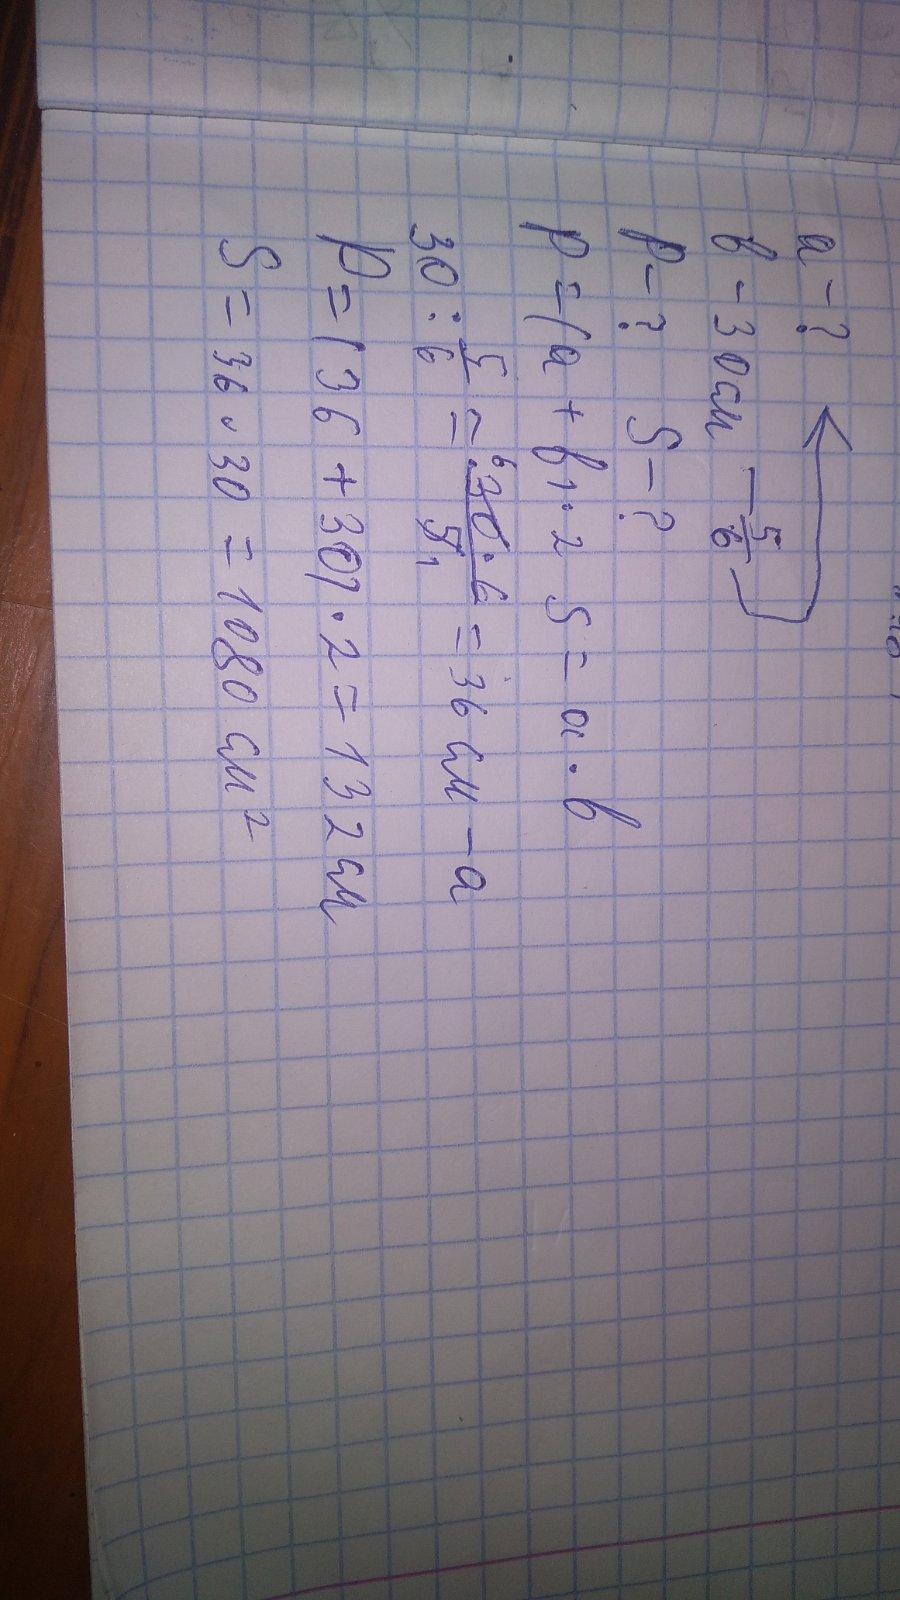 a - ?
b - 30 см - 5/6
P - ? S - ?
P = (a + b) · 2 S = a · b
30 : 5/6 = 30 · 6 / 5 = 36 см - a
P = (36 + 30) · 2 = 132 см
S = 36 · 30 = 1080 см²